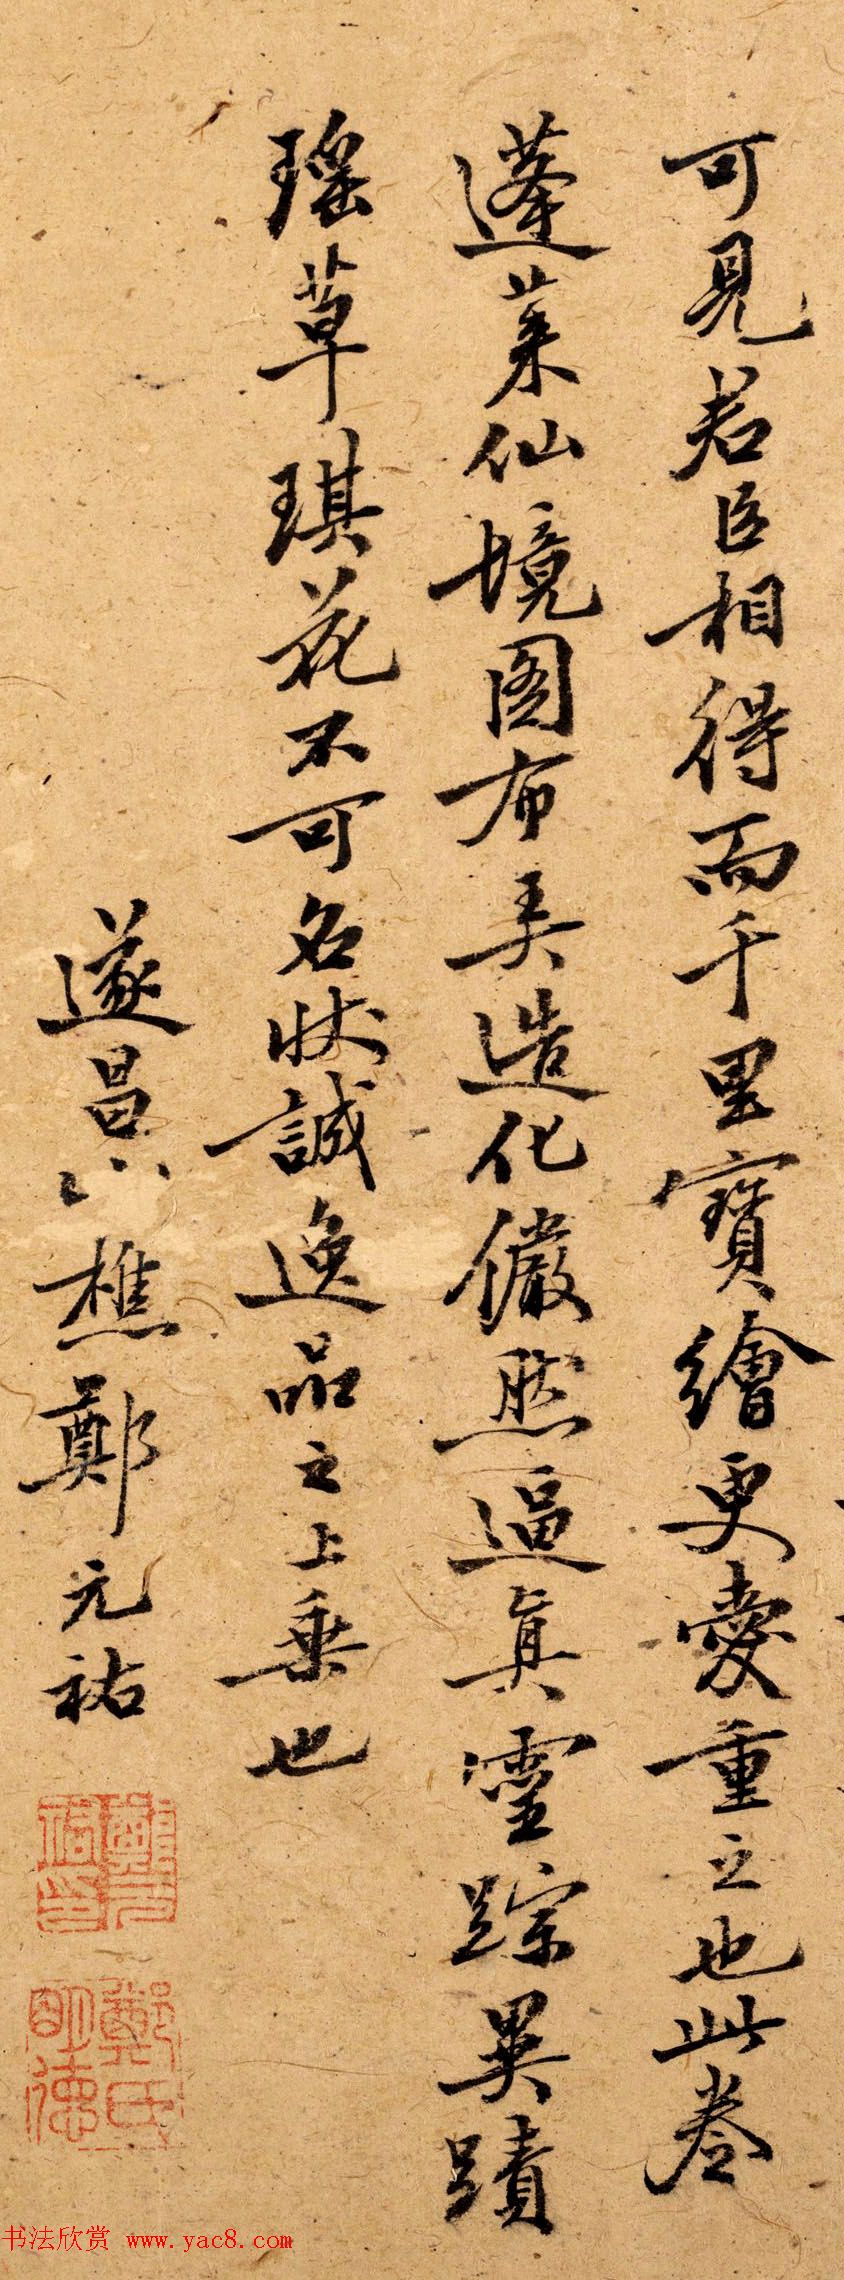 可見君臣相得而千里寶繪更愛重之也此卷
蓬萊仙境圖布美造化儼然逼真靈踪異蹟
瑶草琪花不可名狀誠逸品之上乘也
遂昌山樵鄭元祐
鄭元祐印
鄭氏明德
书法欣赏 www.yac8.com